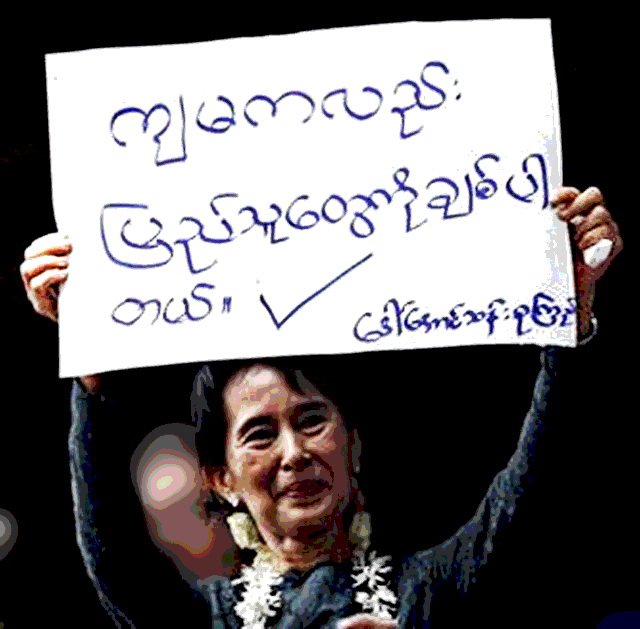 ကျမကလည်း
ပြည်သူတွေကိုချစ်ပါ
တယ်။ ✓
ဒေါ်အောင်ဆန်းစုကြည်